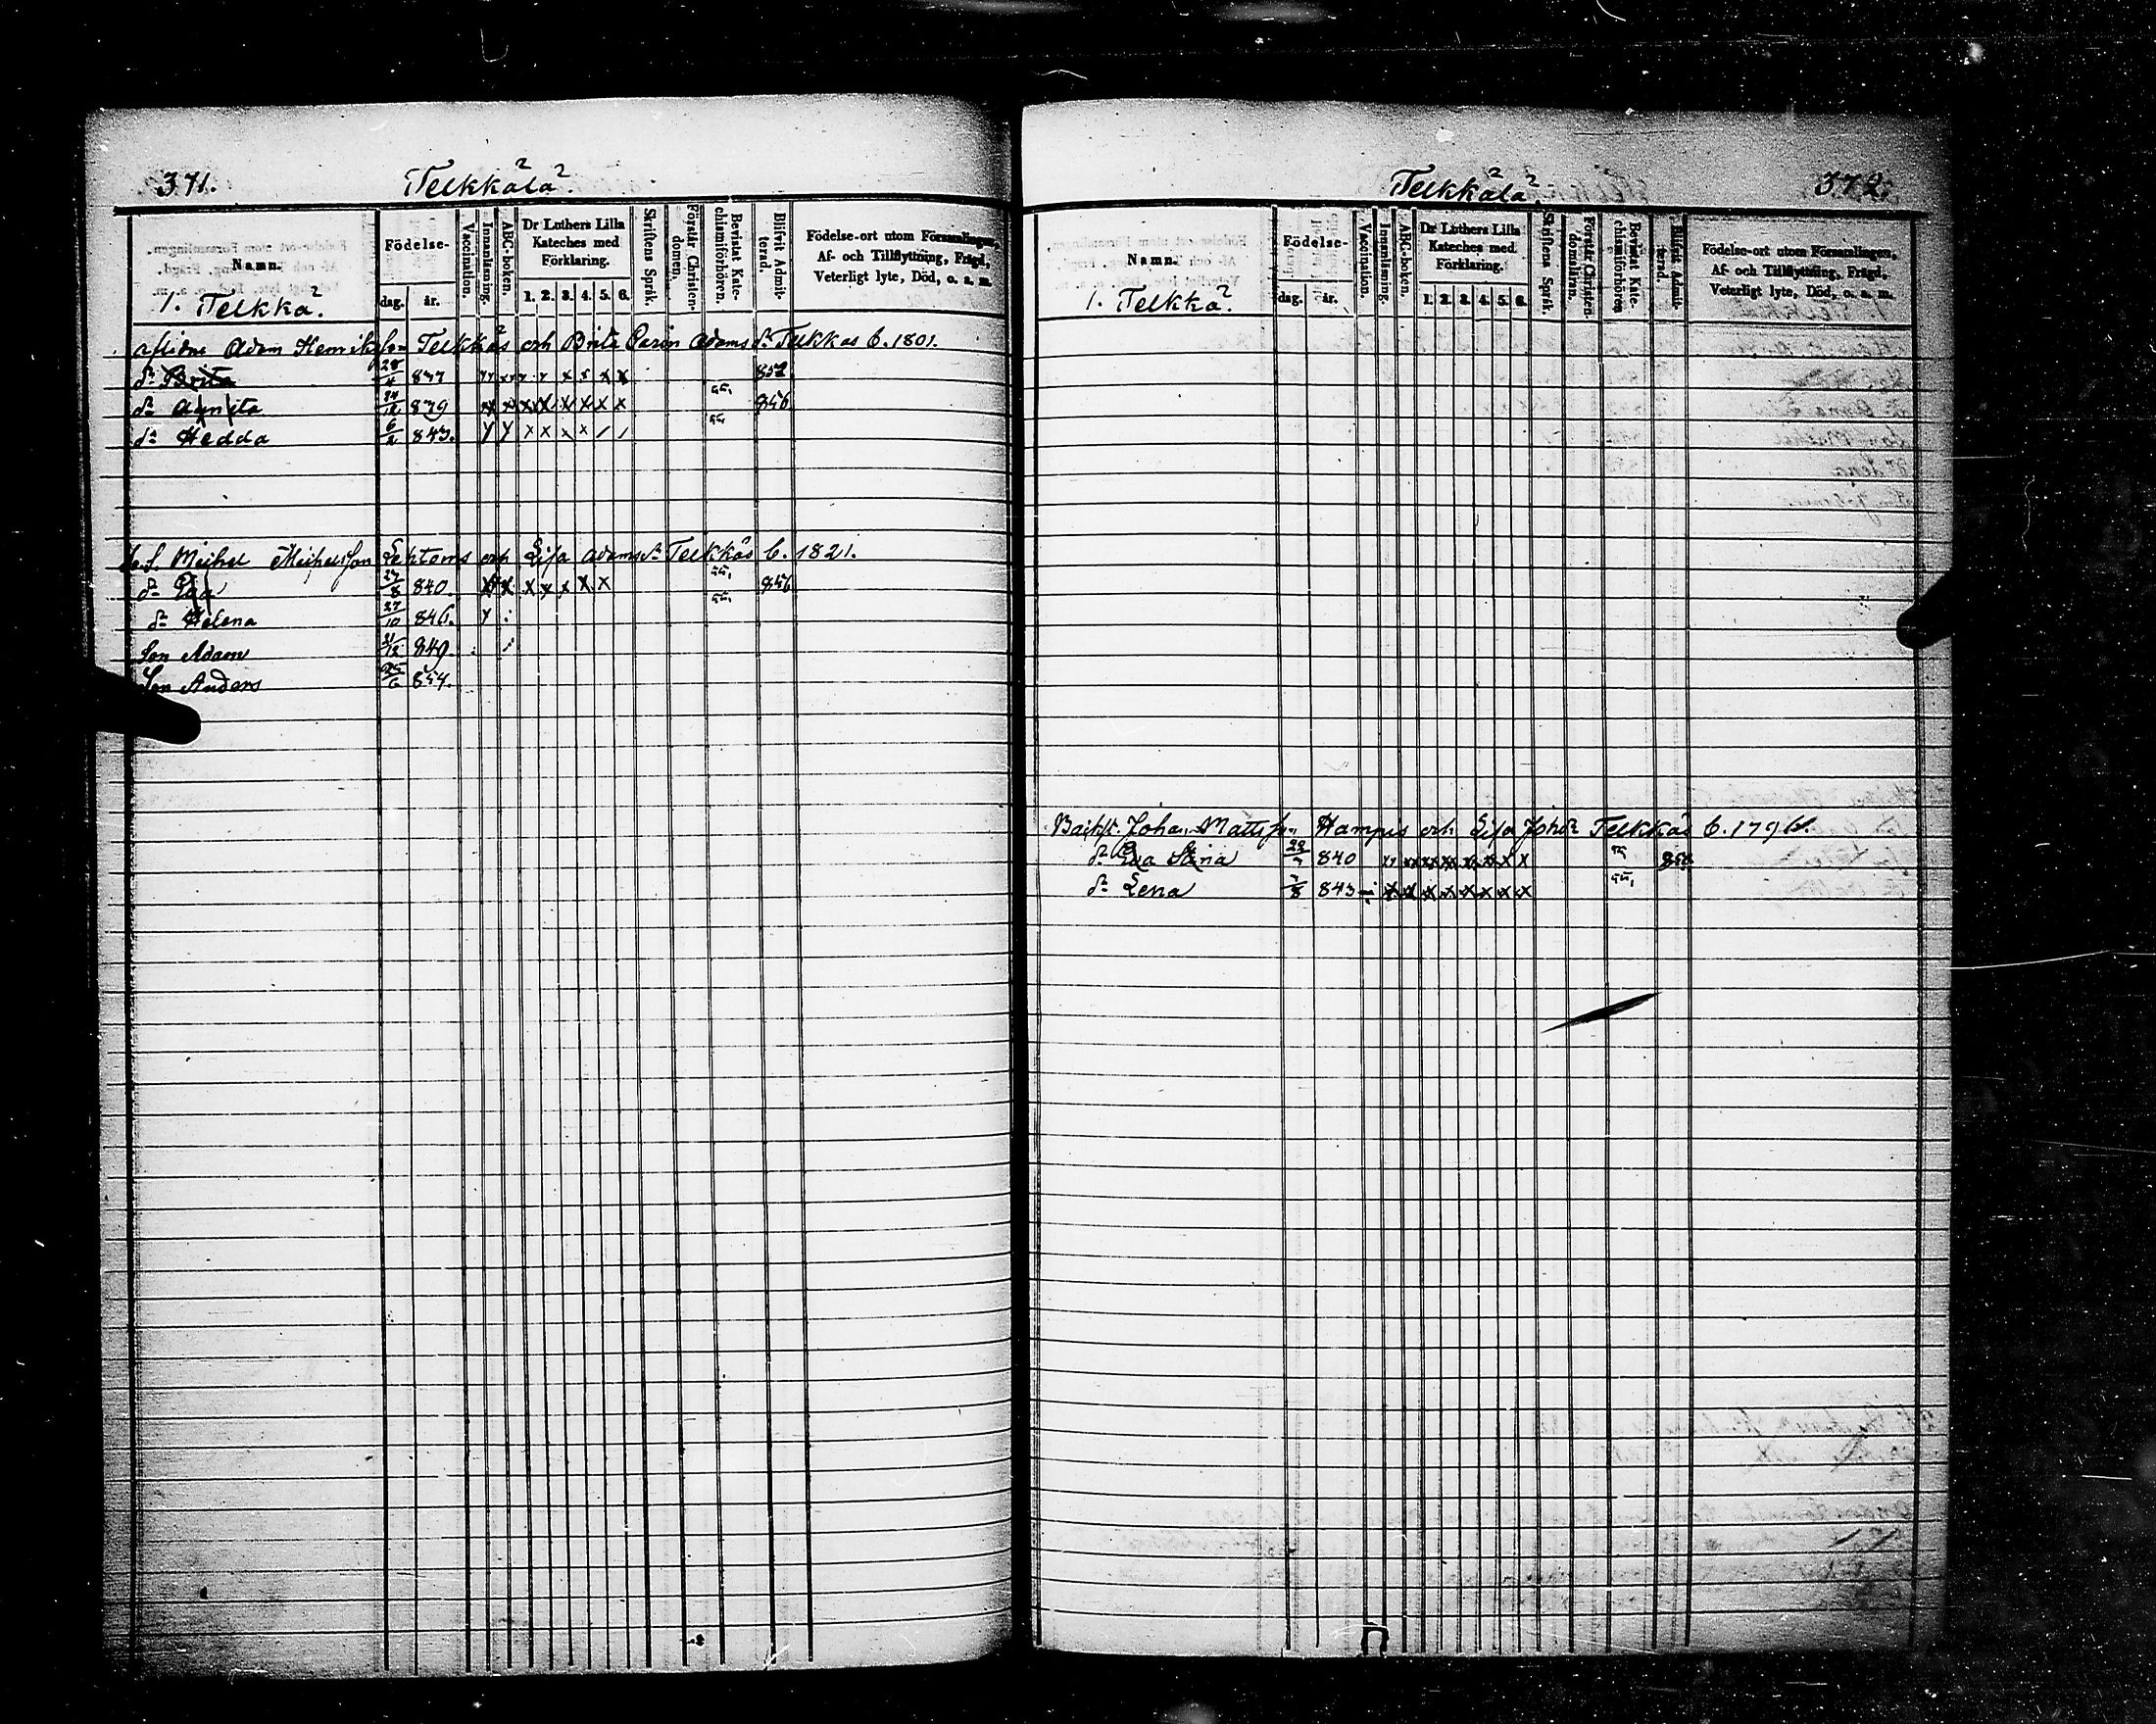 371. Telkkälä.
Namn.
Födelse-
dag. år.
Vaccination.
Innanläsning.
ABC-boken.
Dr Luthers Lilla Kateches med Förklaring.
1. 2. 3. 4. 5. 6.
Skriftens Språk.
Förstår Christendomen.
Bevistat Katechismiförhören.
Blifvit Admitterad.
Födelse-ort utom Församlingen, Af- och Tillflyttning, Frägd, Veterligt lyte, Död, o. s. m.
1. Telkkä.
aflidne Adam Henriksson Telkkäs och Brita Carin Adamsdr Telkkäs b. 1801.
dr Brita 28/4 837 852
dr Agneta 24/12 839 856
dr Hedda 6/2 843.
Michel Michelsson Lehtoms och Lisa Adamsdr Telkkäs b. 1821.
dr Eva 27/8 840 856
dr Helena 27/10 846.
Son Adam 21/12 849.
Son Anders 25/6 854.
Telkkälä. 372.
Namn.
Födelse-
dag. år.
Vaccination.
Innanläsning.
ABC-boken.
Dr Luthers Lilla Kateches med Förklaring.
1. 2. 3. 4. 5. 6.
Skriftens Språk.
Förstår Christendomsläran.
Bevistat Katechismiförhören
Blifvit Admitterad.
Födelse-ort utom Församlingen, Af- och Tillflyttning, Frägd, Veterligt lyte, Död, o. s. m.
1. Telkkä.
Johan Mattsson Hampus och Lisa Johdr Telkkäs b. 1796.
dr Eva Stina 22/7 840
dr Lena 7/8 843